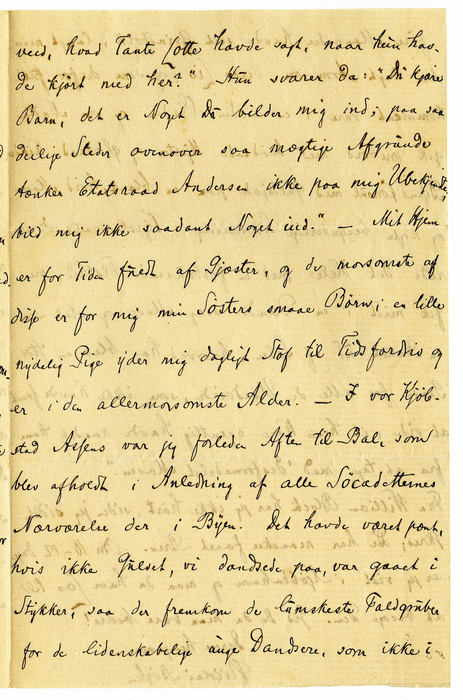 veed, hvad Tante Lotte havde sagt, naar hun hav-
de kjørt med her?" Hun svarer da: "Du kjære
Barn, det er Noget Du bilder mig ind; paa saa
deilige Steder ovenover saa mægtige Afgrunde
tænker Etatsraad Andersen ikke paa mig Ubekjendte,
bild mig ikke saadant Noget ind." — Mit Hjem
er for Tiden fuldt af Gjæster, og de morsomste af
disse er for mig min Søsters smaae Børn; en lille
nydelig Pige yder mig dagligt Stof til Tidsfordriv og
er i den allermorsomste Alder. — I vor Kjøb-
stad Assens var jeg forleden Aften til Bal, som
blev afholdt i Anledning af alle Söcadetternes
Nærværelse der i Byen. Det havde været pænt,
hvis ikke Gulvet, vi dandsede paa, var gaaet i
Stykker, saa der fremkom de lumskeste Faldgruber
for de lidenskabelige unge Dandsere, som ikke i